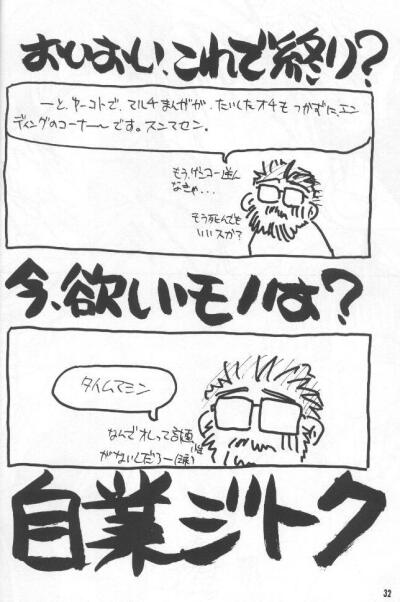 おいおい、これで終り?
ーと、ゆーコトで、マルチまんがが、たいしたオチもつかずに、エン
ディングのコーナーです。スンマセン。
もう、ゲンコー進ん
なきゃ...
もう死んでも
いいスか?
今、欲しいモノは?
タイムマシン
なんでオレって計画性
がないんだろー(涙)
自業ジトク
32